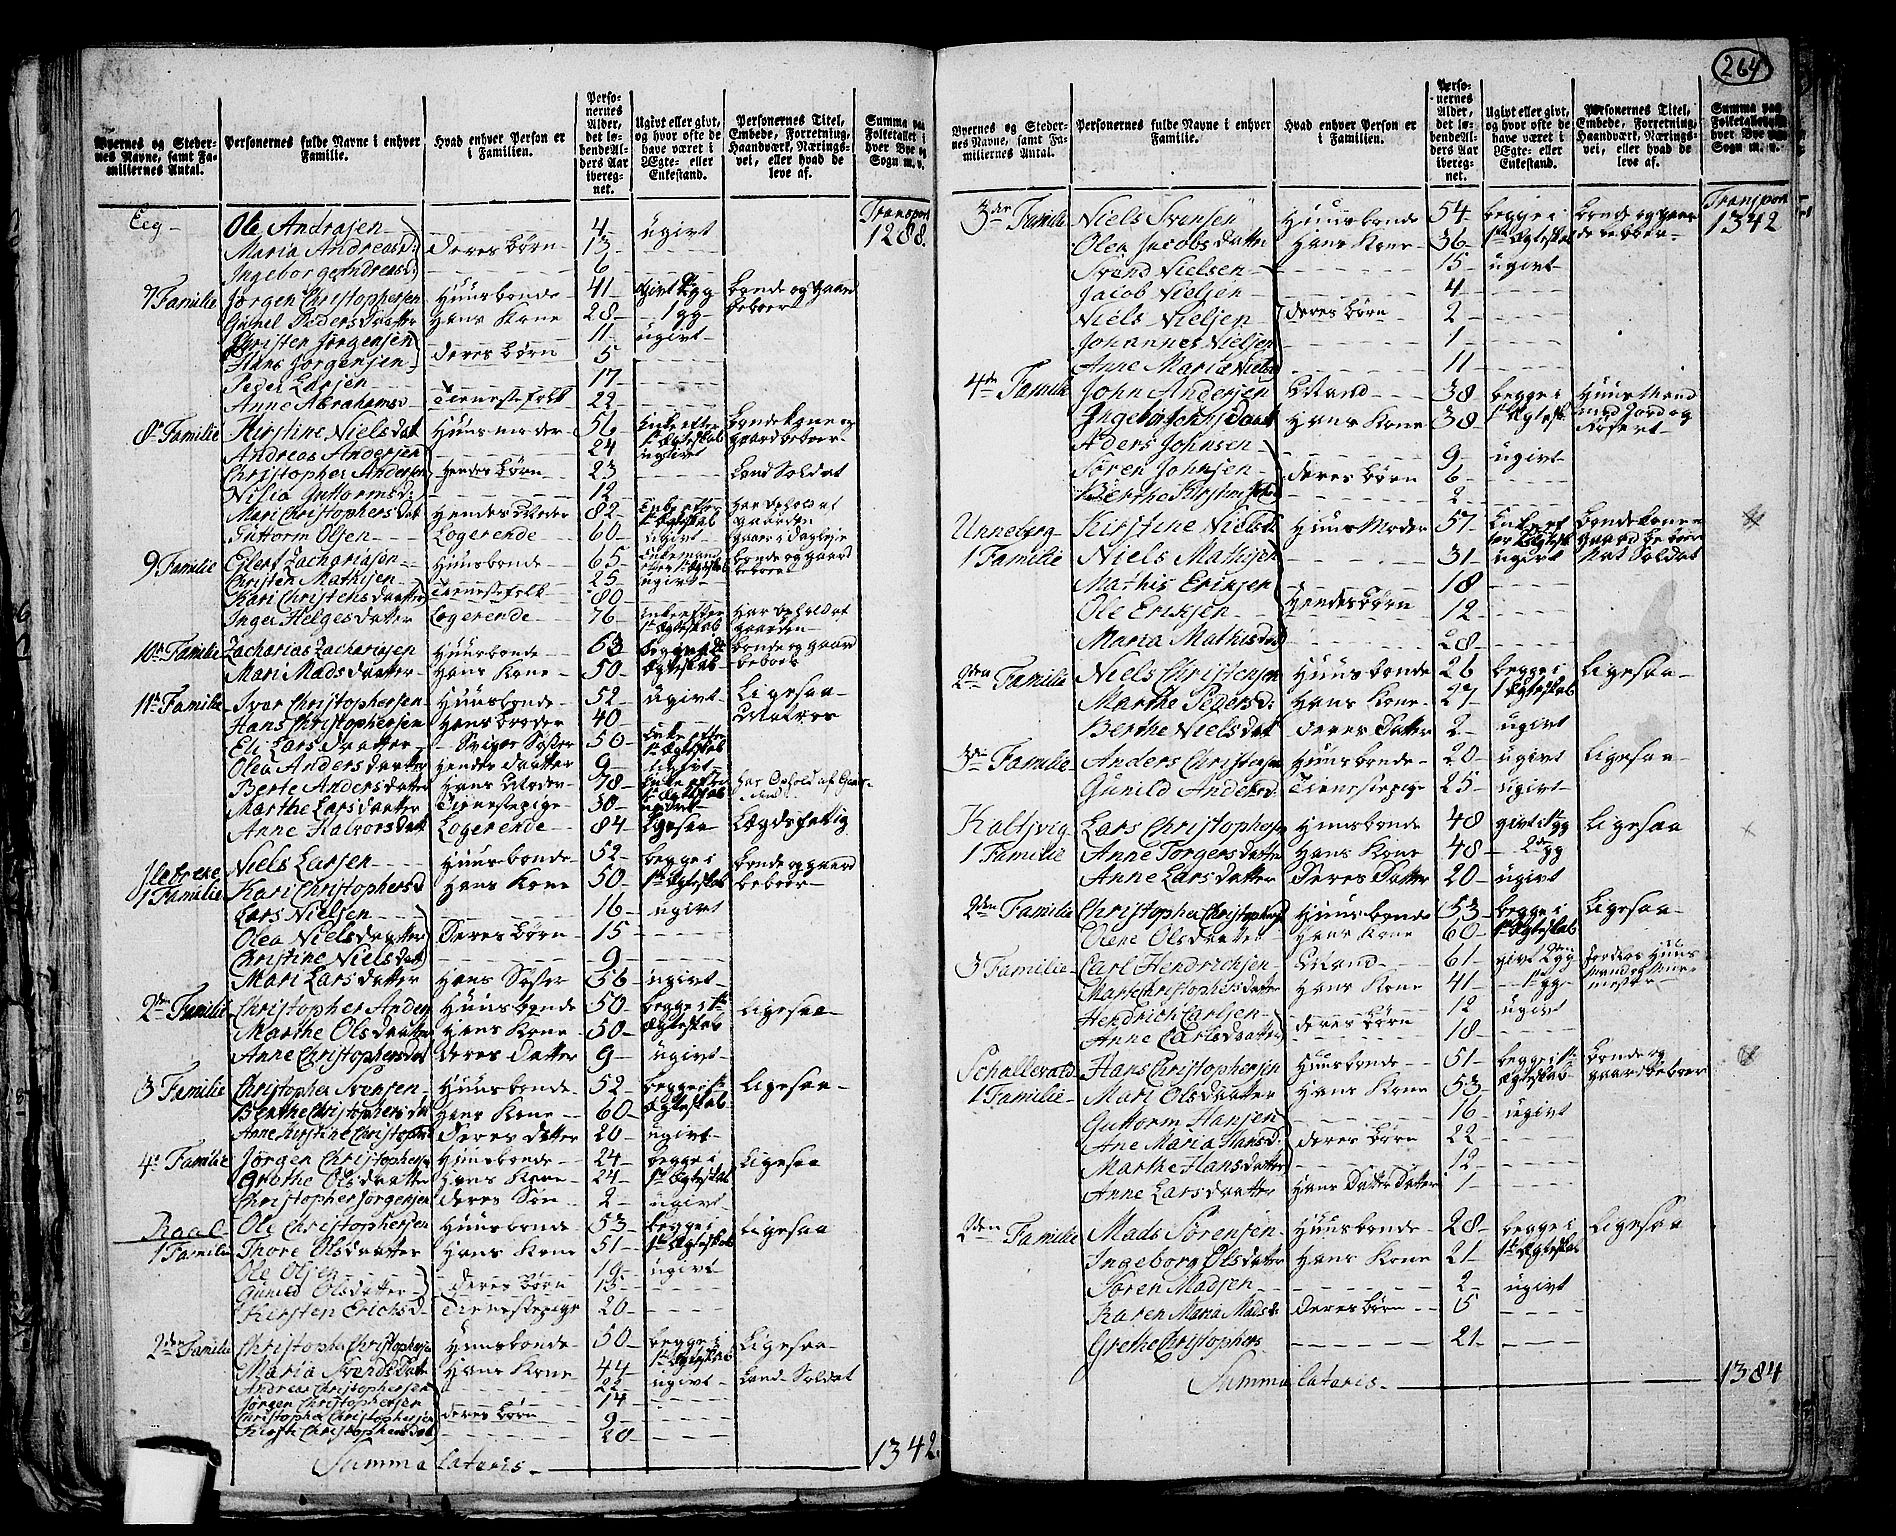 264
Byernes og Stedernes Navne, samt Familiernes Antal.
Personernes fulde Navne i enhver Familie.
Hvad enhver Person er i Familien.
Personernes Alder, det løbende Alders Aar iberegnet.
Ugivt eller givt, og hvor ofte de have været i Ægte- eller Enkestand.
Personernes Titel, Embede, Forretning, Haandværk, Næringsvei, eller hvad de leve af.
Summa paa Folketallet i hver Bye og Sogn m. v.
Transport 1288.
Eeg - Ole Andrasen - - 4 - ugivt
Maria Andreasd: deres børn 13 - - -
Ingeborg Andreasd: - - 6 - - -
7 Familie Jørgen Christophersen Huusbonde 41 - givt 2 gg bonde og gaard beboer
Gunel Peders Daatter Hans Kone 28 - 1 gg -
Christen Jørgensen 11 - ugivt
Hans Jorgensen deres børn 5 - - -
Peder Larsen - - 17 - - -
Anne Abrahamsd Tienestefolk 22 - - -
8de Familie Kirstine Niels dat Huusmoder 56 Enke efter 1ste Ægteskab bondekone og gaardbeboer
Andreas Andersen 24 ugivt
Christopher Andersen hendes børn 23 - - - Land Soldat
Nilia Guttormsd: - - 12 - - -
Mari Christophers dat Hendes Moder 82 - Enke efter 1ste Ægteskab har ophold af gaarden
Guttorm Olsen Logerende 60 - ugivt
9 Familie Eilert Zachariasen Huusbonde 65 Enkemand efter 1ste Ægteskab bonde og gaard beboer
Christen Mathisen 25 - ugivt
Kari Christens daatter Tienestefolk 80 - - -
Inger Helges datter Logerende 76 - Enke efter 1ste Ægteskab har ophold af gaarden
10de Familie Zacharias Zachariasen Huusbonde 63 begge i Ægteskab bonde og gaard beboer
Mari Mads daatter Hans Kone 50 -
11te Familie Ivar Christophersen Huusbonde 52 - ugivt Ligesaa
Hans Christophersen Hans broder 40 - - - Matros
Eli Lars daatter - Sviger Søster 50 - Enke efter 1ste Ægteskab
Olea Anders daatter Hendes daatter 9 - ugivt
Berte Anders datter Hans Moder 78 - Enke efter 1ste Ægteskab har Ophold af Gaarden
Marthe Lars daatter Tienestepige 30 - ugivt
Anne Halvors dat Logerende 84 - Ligesaa Lægdsfattig
1 Familie Niels Larsen Huusbonde 52 - begge i 1ste Ægteskab bonde og gaard beboer
Kari Christophersd Hans Kone 50 -
Lars Nielsen 16 - ugivt
Olea Niels daatter Deres børn 15 - - -
Christine Niels dat 9 - - -
Mari Lars datter Hans Søster 56 - ugivt
2den Familie Christopher Anders Huusbonde 50 - begge i 1ste Ægteskab Ligesaa
Marthe Ols daatter Hans Kone 50 -
Anne Christophersdat deres Datter 9 - ugivt
3 Familie Christopher Svensen Huusbonde 52 - begge i 1ste Ægteskab Ligesaa
Berthe Christophers da Hans Kone 60 -
Anne Kirstine Christophe Deres datter 20 - ugivt
4de Familie Jørgen Christophersen Huusbonde 24 - begge i 1ste Ægteskab Ligesaa
Grethe Ols datter Hans Kone 24 -
Christopher Jørgensen deres Søn 2 - ugivt
Raael Ole Christophersen Huusbonde 53 - begge i 1ste Ægteskab Ligesaa
1 Familie Thore Ols daatter Hans Kone 51 -
Ole Olsen 19 - ugivt
Gunild Ols datter deres børn 13 - - -
Kirsten Erichsd - Tienestepige 20 - - -
2den Familie Christopher Christophersen Huusbonde 50 - begge i 1ste Ægteskab Ligesaa
Maria Svends Datter Hans Kone 44 -
Andreas Christophersen 22 ugivt Land-Soldat
Jørgen Christophersen 14 - - -
Christopher Christophersen deres børn 9 - - -
Kirsti Christophersdat 20 - - -
Summa lateris - 1342.
Byernes og Stedernes Navne, samt Familiernes Antal.
Personernes fulde Navne i enhver Familie.
Hvad enhver Person er i Familien.
Personernes Alder, det løbende Alders Aar iberegnet.
Ugivt eller givt, og hvor ofte de have været i Ægte- eller Enkestand.
Personernes Titel, Embede, Forretning, Haandværk, Næringsvei, eller hvad de leve af.
Summa paa Folketallet i hver Bye og Sogn m. v.
Transport 1342
3die Familie Niels Svensen Huusbonde 54 - begge i 1ste Ægteskab bonde og gaardbeboer
Olea Jacobs Datter Hans Kone 36 -
Svend Nielsen 15 - ugivt
Jacob Nielsen 4 - - -
Niels Nielsen deres børn 2 - - -
Johannes Nielsen 1 - - -
Anne Maria Nielsd 11 - - -
4de Familie John Andersen Mand 38 begge i 1ste Ægtesk Huusmand med Jord og
Ingeborg Jens Daat Hans Kone 38
Aders Johnsen 9 - ugivt
Søren Johnsen deres børn 6 - - -
Berthe Kirstine Johnsd 2 - - -
Unneberg Kirstine Nielsd Huus Moder 57 - Enke efter Ægtesk bondekone gaard beboer
1 Familie Niels Mathisen 31 - ugivt Nat. Soldat
Mathis Eriksen 18 - - -
Ole Eriksen Hendes børn 12 - - -
Maria Mathisdat 28 - - -
2den Familie Niels Christensen Huusbonde 26 begge i 1 Ægteskab Ligesaa
Marthe Pedersd: Hans Kone 27 -
Berthe Niels dat deres Datter 2 - ugivt
3die Familie Anders Christensen Huusbonde 20 - ugivt Ligesaa
Gunild Andersd: Tienestepige 25 - ugivt
Kaltsvig Lars Christophersen Huusbonde 48 givt 1ste gg Ligesaa
1 Familie Anne Torgers datter Hans Kone 48 - 2den gg
Anne Lars datter Deres Datter 20 - ugivt
2den Familie Christopher Christophers Huusbonde 53 - begge i 1ste Ægteskab Ligesaa
Elene Ols daatter Hans Kone 60
3 Familie Carl Hendrichsen Mand 61 - givt 2den gg Jordløs Huusmand og Muurmester
Mari Christophers datter Hans Kone 41 - 1ste gg
Hendrich Carlsen 12 ugivt
Anne Carls daatter deres børn 18 - - -
Schallevald Hans Christophersen Huusbonde 51 - begge i 1ste Ægteskab bonde og gaardbeboer
1 Familie Mari Ols daatter Hans Kone 53 -
Guttorm Hansen 16 - ugivt
Ane Maria Hansd: deres børn 22 - - -
Marthe Hans datter 12 - - -
Anne Lars daatter Hans Datter Datter 1 - - -
2den Familie Mads Sørensen Huusbonde 28 - begge i 1ste Ægteskab Ligesaa
Ingeborg Ols datter Hans Kone 21 -
Søren Madsen 2 - ugivt
Karen Maria Mads d: deres børn 5 - - -
Grethe Christophers 21 - - -
Summa lateris - 1384